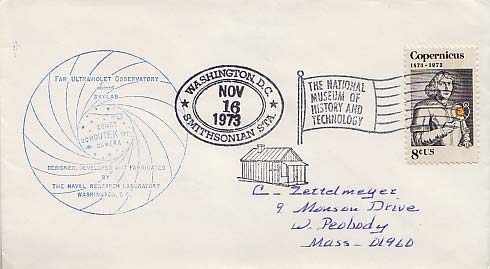 FAR ULTRAVIOLET OBSERVATORY
aboard
SKYLAB
COMET
KOHOUTEK
CAMERA
DESIGNED, DEVELOPED AND FABRICATED
BY
THE NAVAL RESEARCH LABORATORY
WASHINGTON, D.C.
WASHINGTON, D.C.
NOV
16
1973
SMITHSONIAN STA.
THE NATIONAL
MUSEUM OF
HISTORY AND
TECHNOLOGY
Copernicus
1473-1973
8¢ US
C - Zettelmeyer
9 Monson Drive
W. Peabody
Mass - 01960